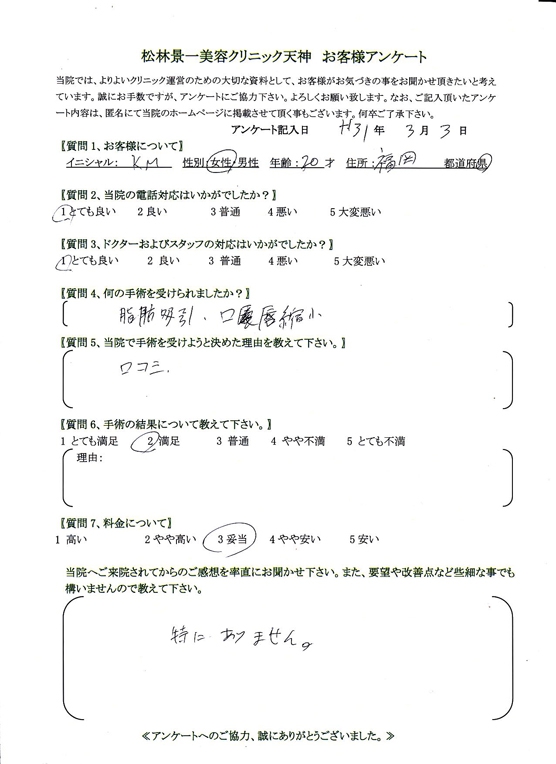 松林景一美容クリニック天神　お客様アンケート
当院では、よりよいクリニック運営のための大切な資料として、お客様がお気づきの事をお聞かせ頂きたいと考え
ています。誠にお手数ですが、アンケートにご協力下さい。よろしくお願い致します。なお、ご記入頂いたアンケ
ート内容は、匿名にて当院のホームページに掲載させて頂く事もございます。何卒ご了承下さい。
アンケート記入日　H31年　3月　3日
〖質問 1、お客様について〗
イニシャル: K M　性別:女性/男性　年齢:20才　住所:福岡　都道府県
〖質問 2、当院の電話対応はいかがでしたか?〗
1とても良い　2 良い　3 普通　4 悪い　5 大変悪い
〖質問 3、ドクターおよびスタッフの対応はいかがでしたか?〗
1とても良い　2 良い　3 普通　4 悪い　5 大変悪い
〖質問 4、何の手術を受けられましたか?〗
脂肪吸引、口唇縮小
〖質問 5、当院で手術を受けようと決めた理由を教えて下さい。〗
口コミ.
〖質問 6、手術の結果について教えて下さい。〗
1 とても満足　2 満足　3 普通　4 やや不満　5 とても不満
理由:
〖質問 7、料金について〗
1 高い　2 やや高い　3 妥当　4 やや安い　5 安い
当院へご来院されてからのご感想を率直にお聞かせ下さい。また、要望や改善点など些細な事でも
構いませんので教えて下さい。
特にありません。
≪アンケートへのご協力、誠にありがとうございました。≫